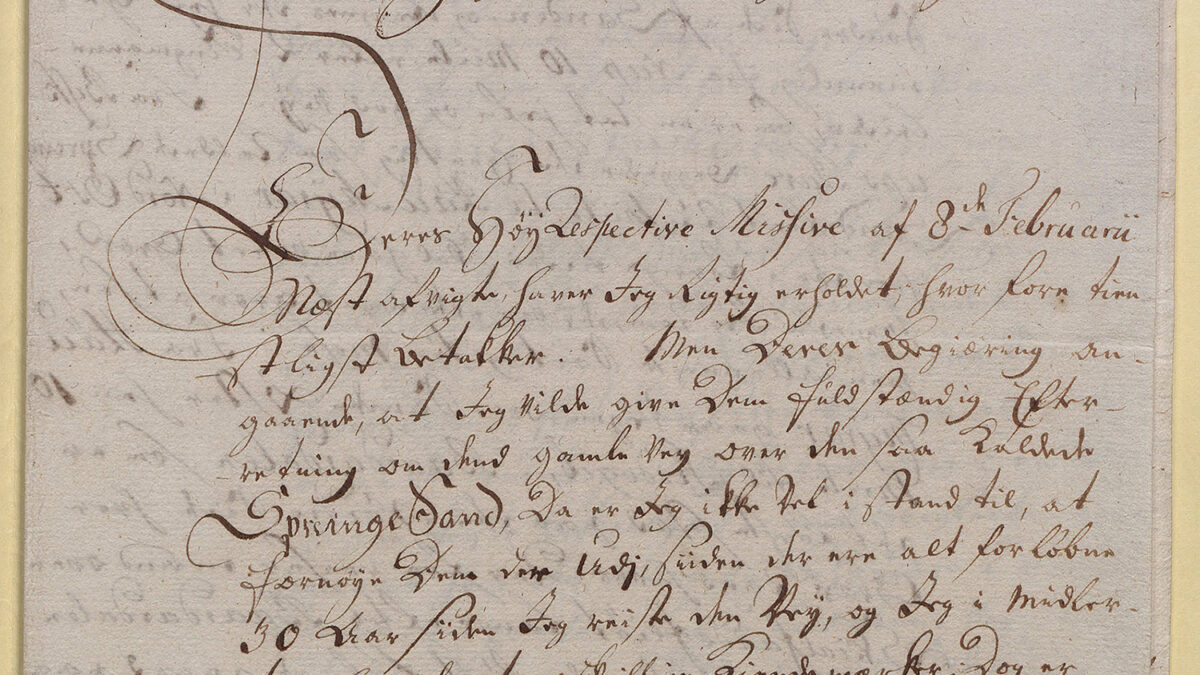 Deres HøyRespective Missive af 8de Februarii
Næst afvigte, haver Jeg Rigtig erholdet, hvor fore tien-
stligst betakker. Men Deres begiæring an-
gaaende, at Jeg vilde give Dem fuldstændig Efter-
retning om dend gamle Vey over den saa kaldede
SpreingeSand, Da er Jeg ikke vel i stand til, at
fornøye Dem der Udj, siiden der ere alt forløbne
30 Aar siiden Jeg reiste den Vey, og Jeg i midler-
Kiendemærker, Dog er